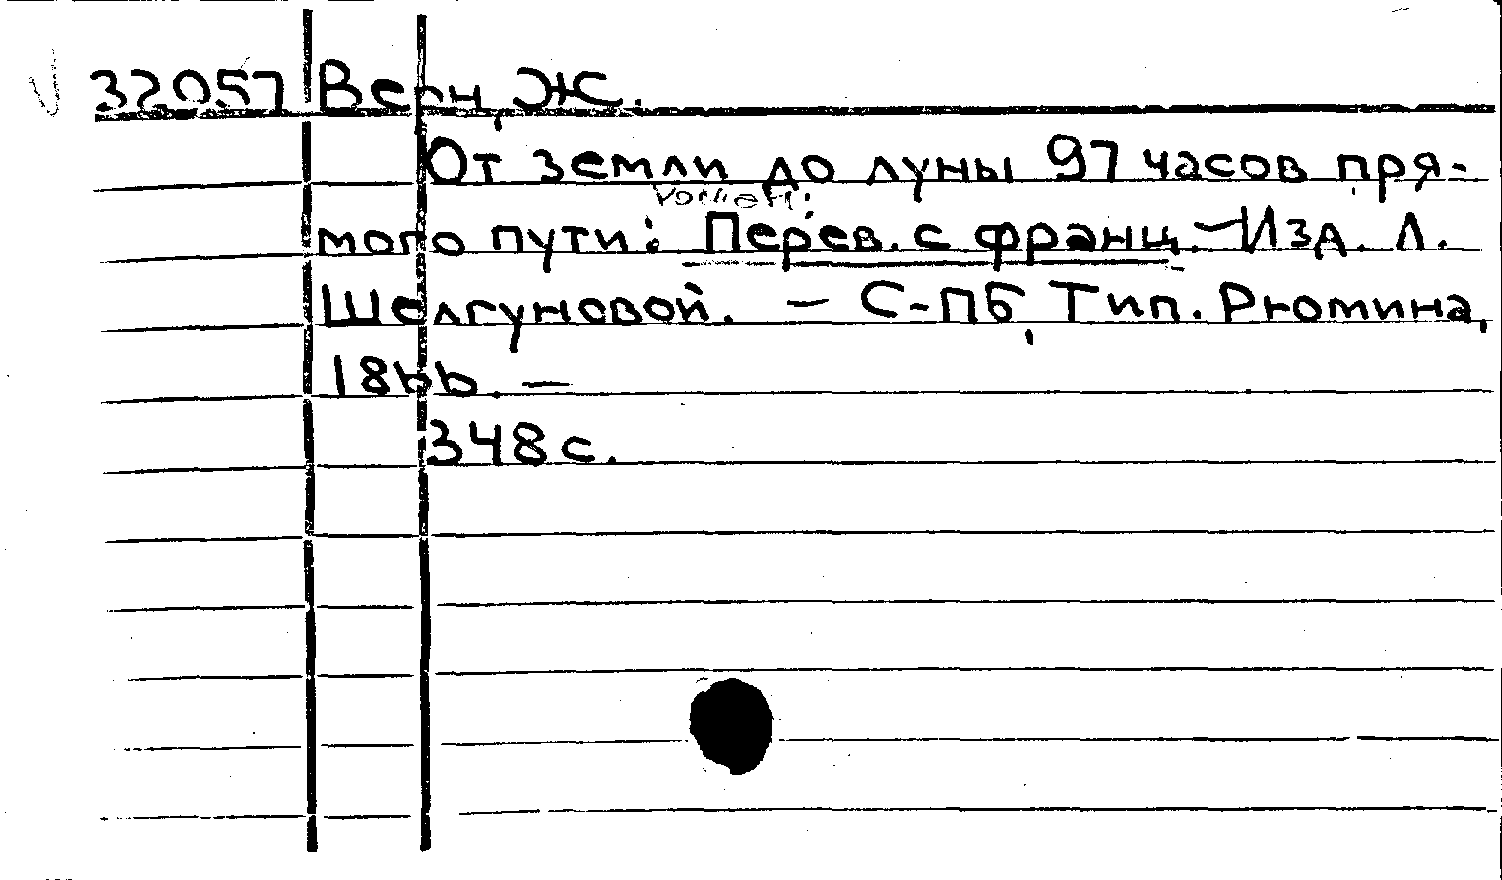 32057 Верн, Ж.
От земли до луны 97 часов пря-
мого пути: Перев. с франц. - Изд. Л.
Шелгуновой. - С-Пб, Тип. Рюмина,
1866. -
348 с.